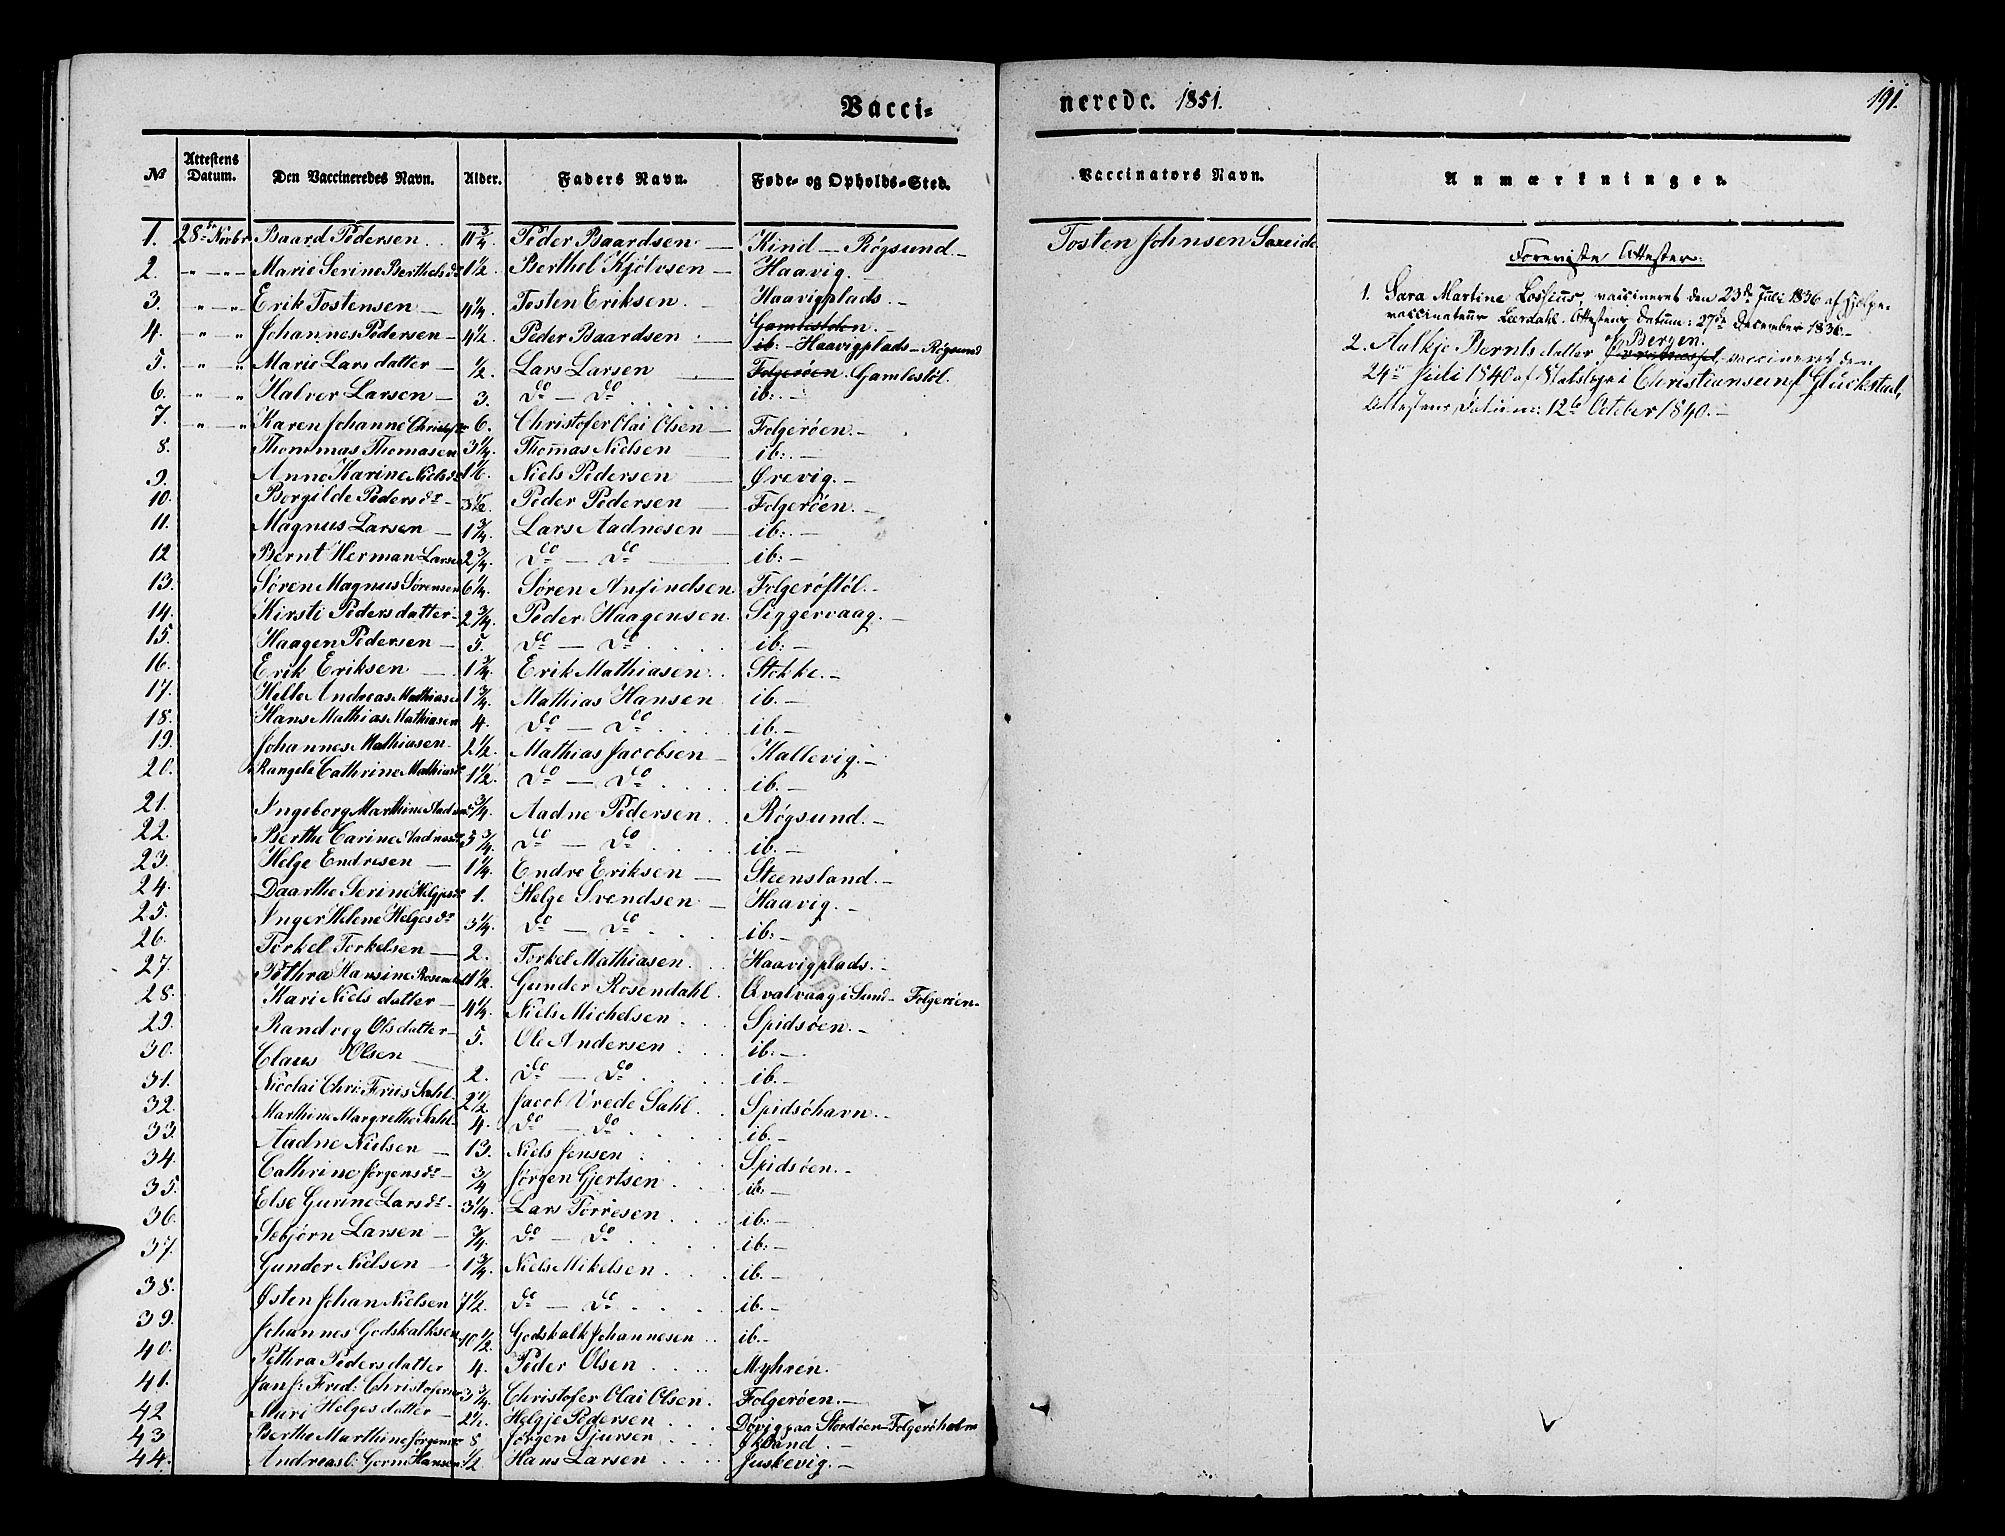 Vacci= nerede. 1851. 191.
№ Attestens Datum. Den Vaccineredes Navn. Alder. Faders Navn. Føde- og Opholds-Sted. Vaccinators Navn. Anmærkninger.
1. 28de Novbr Baard Pedersen 11 3/4 Peder Baardsen Kind - Røgsund Tosten Johnsen
2. " " Marie Serine Berthelsdr 1 1/2 Berthel Haavig.
3. " " Erik Tostensen 4 1/4 Tosten Eriksen Haavigplads.
4. " " Johannes Pedersen 4 1/2 Peder Baardsen Gamlestolen ib: - Haavigplads - Røgsund
5. " " Marie Larsdatter 1/2 Lars Larsen Folgerøen Gamlestöl.
6. " " Halvor Larsen 3. do - do ib: -
7. " " Karen Johanne 6. Christofer Olai Olsen Folgerøen.
8. Thommas Thomasen 3 1/4 Thomas Nielsen ib: -
9. Anne Karine Nielsdr Niels Pedersen Ørevig.
10. Borgilde Pedersdr 3 1/2 Peder Pedersen Folgerøen.
11. Magnus Larsen 1 3/4 Lars Aadnesen ib: -
12 Bernt Herman Larsen 2 3/4 do - do ib: -
13. Søren Magnus Sørensen 6 1/4 Søren Anfindsen Folgerøstöl.
14. Kirsti Pedersdatter 2 3/4 Peder Haagensen Siggervaag.
15. Haagen Pedersen 5. do do ib: -
16. Erik Eriksen 1 3/4 Erik Mathiasen Stokke.
17. Helle Andreas Mathiasen 1 3/4 Mathias Hansen ib. -
18. Hans Mathias Mathiasen 4. do - do ib. -
19. Johannes Mathiasen 2 1/2 Mathias Jacobsen Kallevig.
20. Cathrine 1 1/2 do - do ib. -
21. Ingeborg Marthine 3/4 Aadne Pedersen Røgsund.
22. Berthe Carine Aadnesdr 3 3/4 do - do ib. -
23. Helge Endresen 1 1/4 Endre Eriksen Steensland.
24. Daarthe Serine Helgesdr 1. Helge Svendsen Haavig.
25. Inger Helene Helgesdr 3 1/4 do - do ib: -
26. Torkel Torkelsen 2. Torkel Mathiasen Haavigplads.
27. Pethra Hansine 1 1/2 Gunder Rosendahl Qvalvaag i Sund - Folgerøen
28. Kari Nielsdatter 4 1/4 Niels Michelsen Spidsøen.
29. Randvig Olsdatter 5. Ole Andersen ib: -
30. Claus Olsen 2. do - do ib. -
31. Nicolai Chr: Friis Sahl 2 1/2 Jacob Vrede Sahl Spidsøhavn.
32. Marthine Margrethe Sahl 4. do - do ib. -
33. Aadne Nielsen 13. Niels Jensen Spidsøen.
34. Cathrine Jørgensdr 3/4 Jørgen Gjertsen ib: -
35. Else Gurine Larsdr 3 1/4 Lars Torresen ib: -
36. Sebjørn Larsen 3/4 do - do ib: -
37. Gunder Nielsen 1 3/4 Niels Mikelsen ib. -
38. Østen Johan Nielsen 7 1/2 do - do ib. -
39. Johannes Godskalksen 10 1/2 Godskalk Johannesen ib. -
40. Pethra Pedersdatter 4. Peder Olsen Myhren.
41. Fred: Christofersen 3 3/4 Christofer Olai Olsen Folgerøen.
42 Mari Helgesdatter 2 1/2 Helgje Pedersen Døvig paa Stordøen - Folgerøholm
43 Berthe Marthine 8 Jørgen Sjursen
44. Hansen 1/2 Hans Larsen Juskevig.
Foreviste Attester:
1. Sara Martine Lossius, vaccineret den 23de Juli 1836 af Hjelpe-
vaccinateur Leerdahl. Attestens Datum: 27de December 1836.
2. Aalkje Berntsdatter af Bergen. vaccineret den
24de Juli 1840 af i Christiansund Glückstad,
Attestens Datum: 12te October 1840.